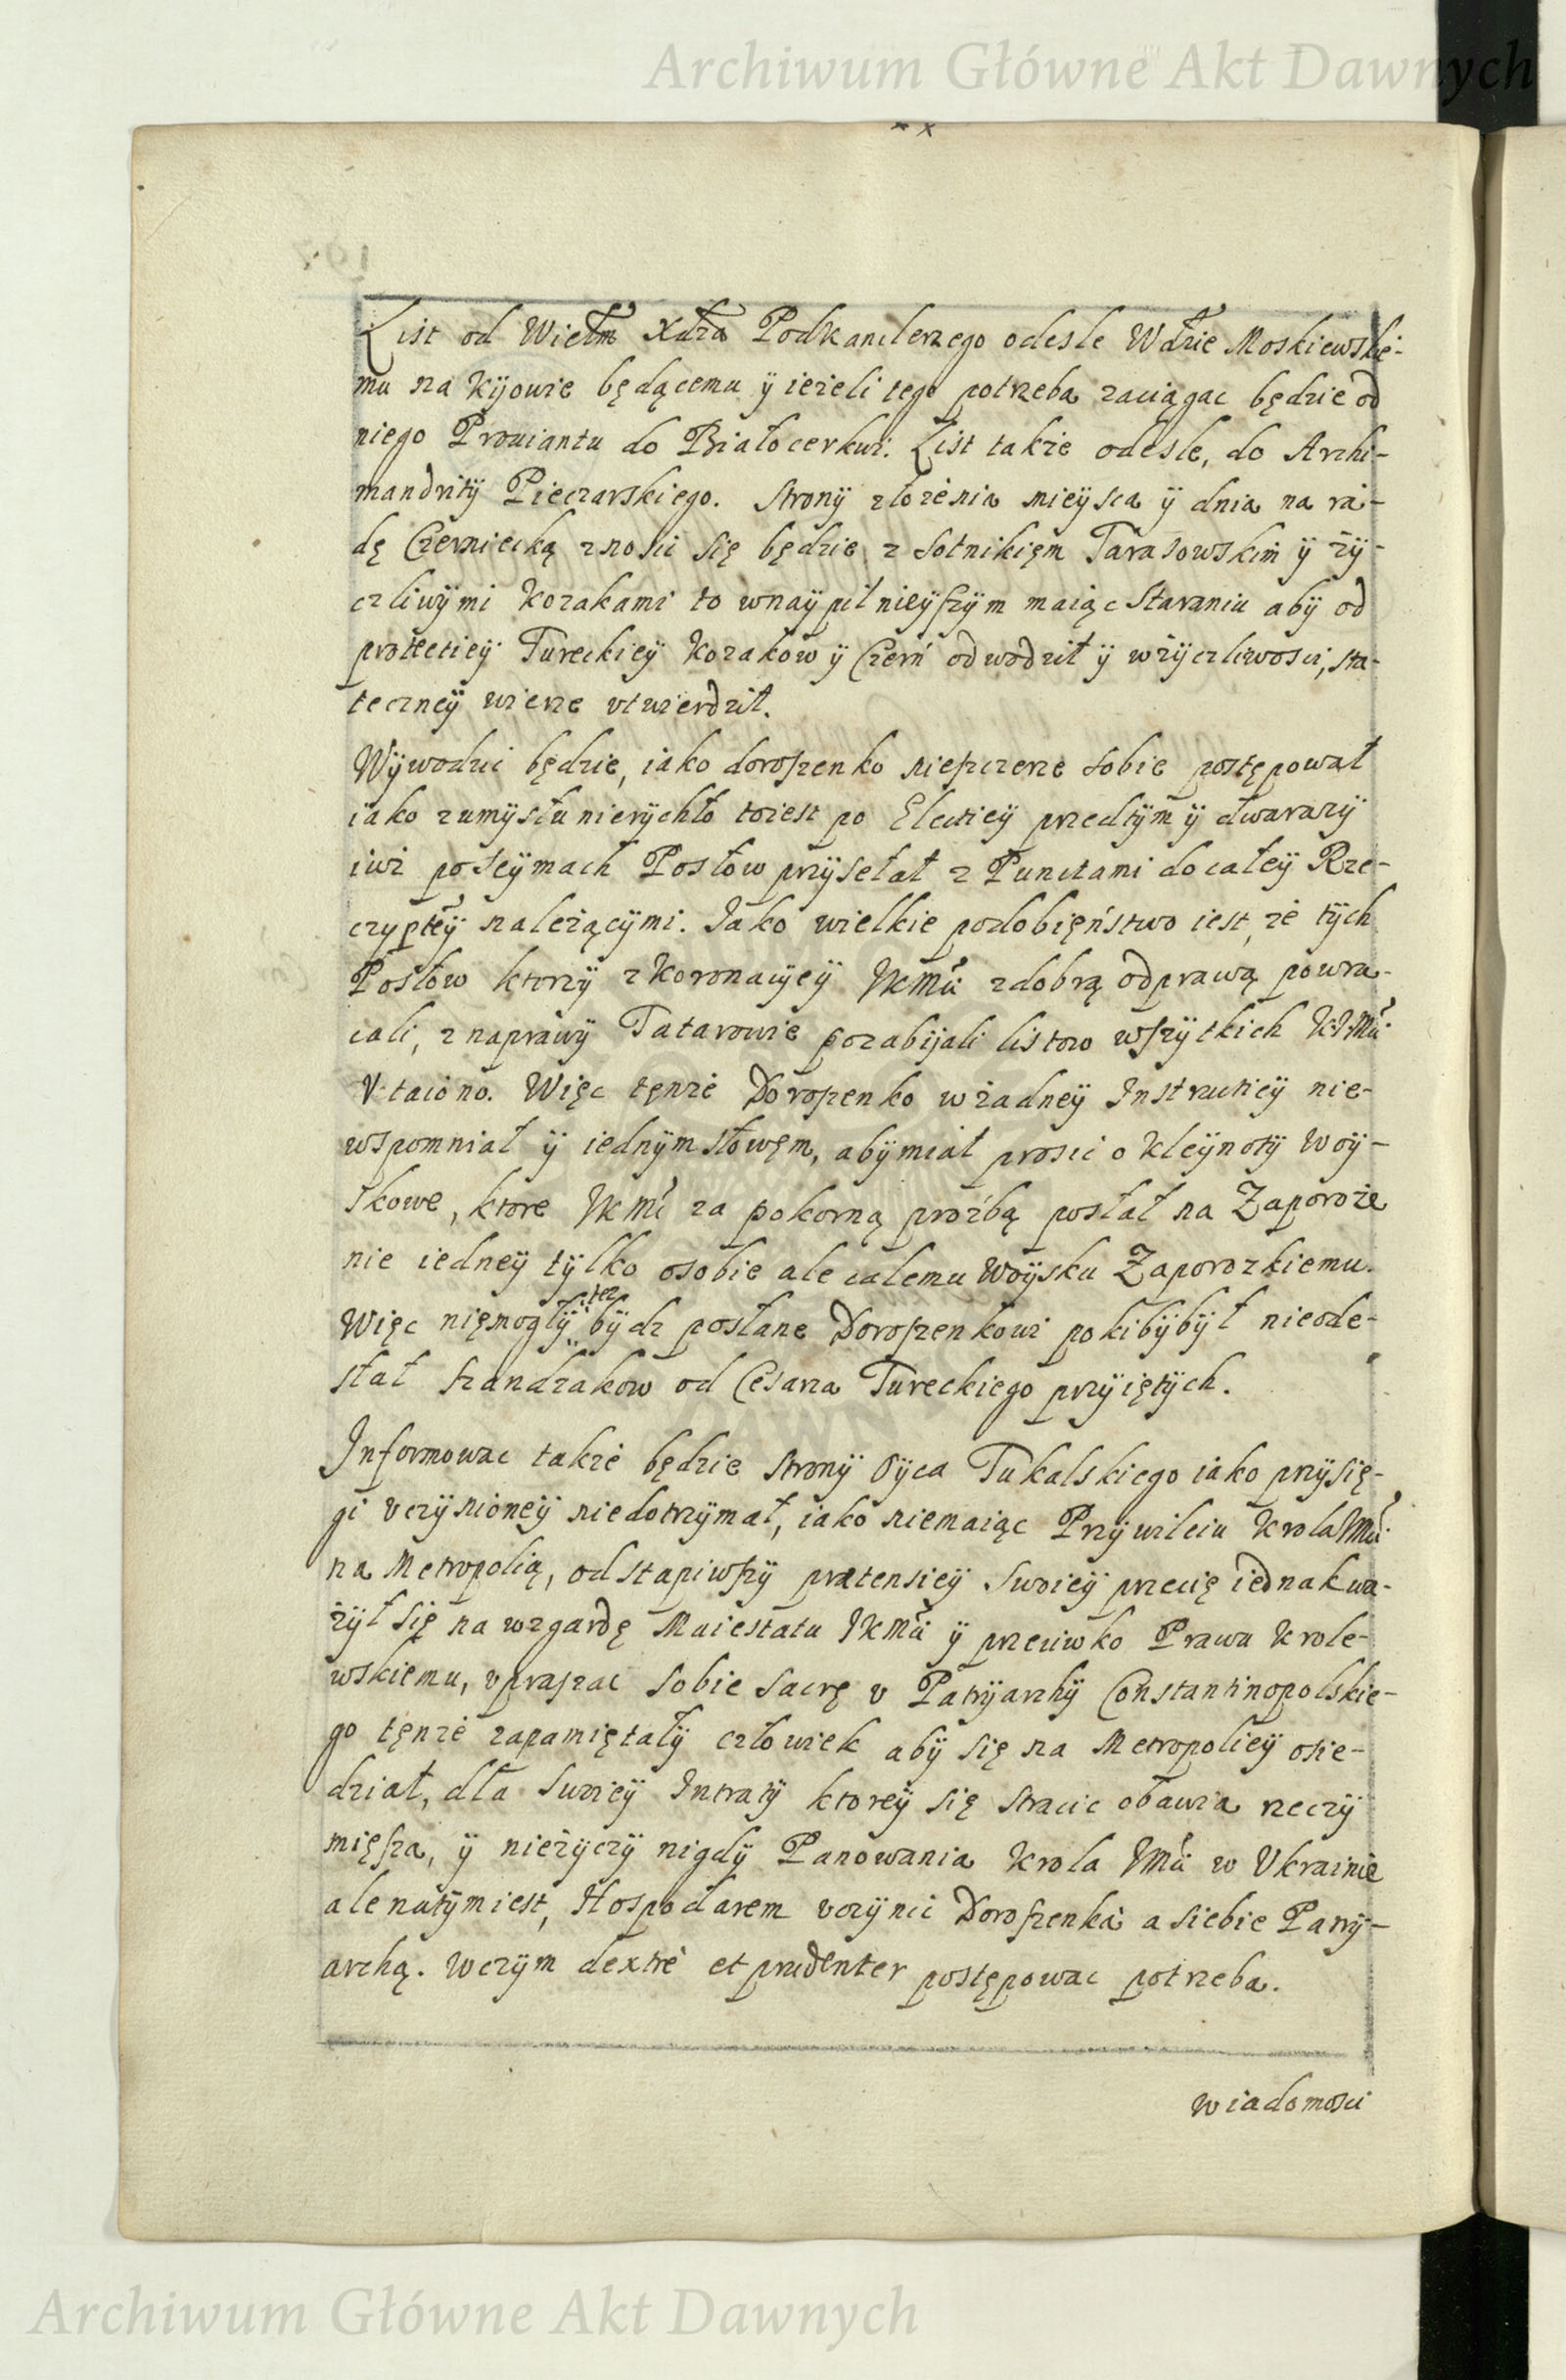 Archiwum Główne Akt Dawnych
List od Wielm Xdza Podkanclerzego odesle Wdzie Moskiewskie-
mu na Kÿowie będącemu ÿ ieżeli tego potrzeba zaciągac będzie od
niego Prouiantu do Białocerkwi. List takze odesle, do Archi-
mandritÿ Pieczarskiego. Stronÿ złożenia mieÿsca ÿ dnia na ra-
dę Czerniecką znosic się będzie z Sotnikięm Tarasowskim ÿ zÿ-
czliwÿmi Kozakami to wnaÿpilnieÿszÿm maiąc Staraniu abÿ od
protectieÿ Tureckieÿ Kozakow ÿ Czerń odwodził ÿ wżÿczliwosci, sta-
teczneÿ wierze vtwierdził.
Wÿwodzic będzie, iako doroszenko nieszczerze sobie postępował
iako zumÿsłu nierÿchło toiest po Electieÿ przedtÿm ÿ dwarazÿ
iuż poseÿmach Posłow przÿsełał z Punctami do całeÿ Rze-
czypteÿ należącÿmi. Iako wielkie podobięństwo iest, że tÿch
Posłow ktorzÿ z Koronacÿeÿ JKMci zdobrą odprawą powra-
cali, z naprawÿ Tatarowie pozabijali listow wszÿtkich KJMci
Vtaiono. Więc tęnże Doroszenko w żadneÿ Instructieÿ nie-
wspomniał ÿ iednÿm słowęm, abÿ miał prosic o Kleÿnotÿ Woÿ-
skowe, ktore JKMć za pokorną proźbą posłał na Zaporoże
nie iedneÿ tÿlko osobie ale całemu Woÿsku Zaporozkiemu.
Więc nięmogłÿ też bÿdz posłane Doroszenkowi pokibÿbÿł nieode-
słał Szandzakow od Cesarza Tureckiego przÿiętÿch.
Informowac także będzie stronÿ Oÿca Tukalskiego iako przÿsię-
gi vczÿnioneÿ niedotrzÿmał, iako niemaiąc Przÿwileiu Krola JMci
na Metropolią, odstapiwszÿ prætensieÿ swoieÿ przecię iednak wa-
żÿł się na wzgardę Maiestatu JKMci ÿ przeciwko Prawu Krole-
wskiemu, vpraszac sobie Sacrę v Patrÿarchÿ Constantinopolskie-
go tęnże zapamiętałÿ człowiek abÿ się na Metropolieÿ osie-
dział, dla swoieÿ Intratÿ ktoreÿ się stracic obawia rzeczÿ
mięsza, ÿ nieżÿczÿ nigdÿ Panowania Krola JMci w Vkrainie
ale natÿmiest, Hospodarem vczÿnic Doroszenka a siebie Patrÿ-
archą. Wczÿm dextrè et prudenter postępowac potrzeba.
wiadomosci
Archiwum Główne Akt Dawnych